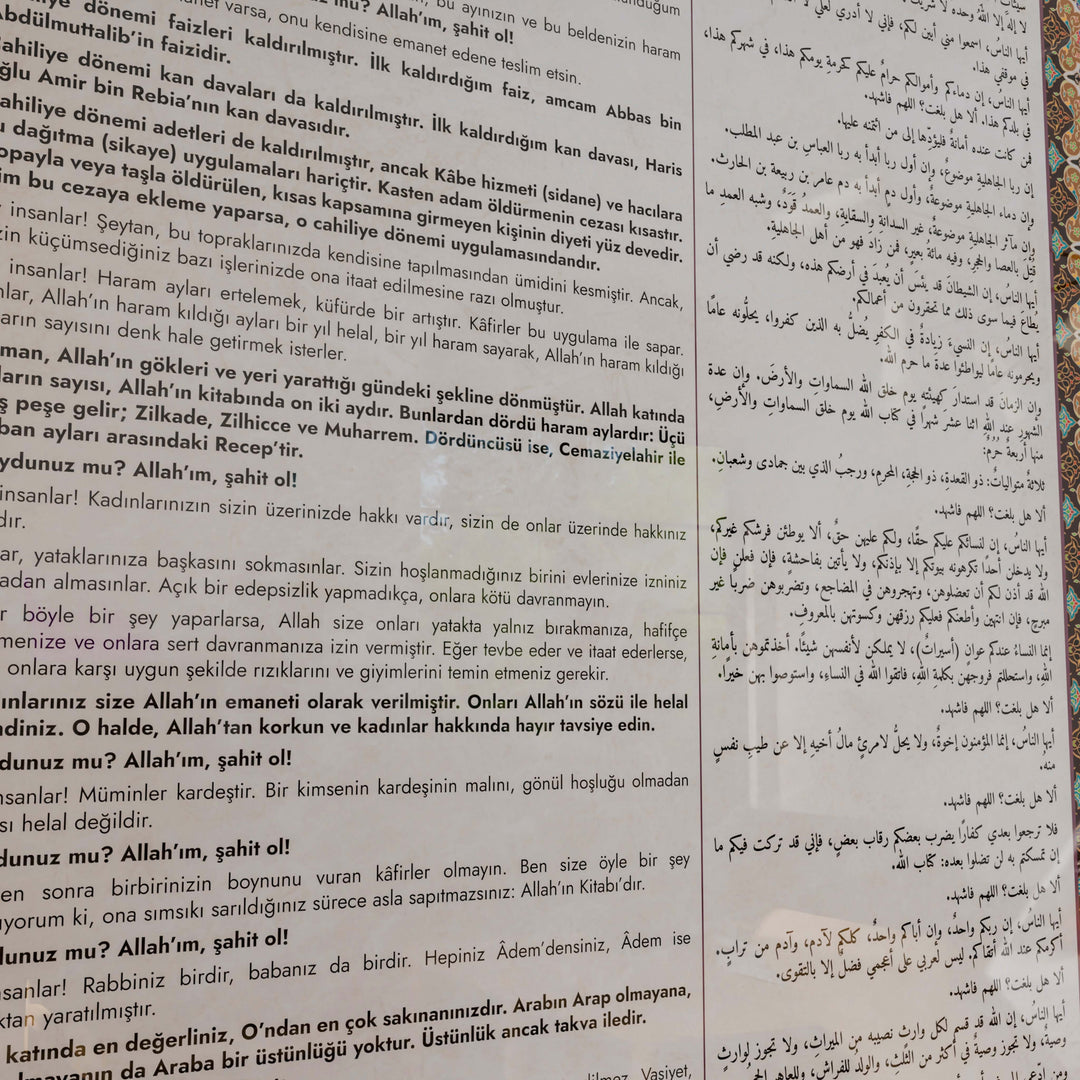 bu ayınızın ve bu beldenizin haram
mu? Allah'ım, şahit ol!
varsa, onu kendisine emanet edene teslim etsin.
dönemi faizleri kaldırılmıştır. İlk kaldırdığım faiz, amcam Abbas bin
Abdülmuttalib'in faizidir.
ahiliye dönemi kan davaları da kaldırılmıştır. İlk kaldırdığım kan davası, Haris
ğlu Amir bin Rebia'nın kan davasıdır.
ahiliye dönemi adetleri de kaldırılmıştır, ancak Kâbe hizmeti (sidane) ve hacılara
u dağıtma (sikaye) uygulamaları hariçtir. Kasten adam öldürmenin cezası kısastır.
opayla veya taşla öldürülen, kısas kapsamına girmeyen kişinin diyeti yüz devedir.
im bu cezaya ekleme yaparsa, o cahiliye dönemi uygulamasındandır.
insanlar! Şeytan, bu topraklarınızda kendisine tapılmasından ümidini kesmiştir. Ancak,
zin küçümsediğiniz bazı işlerinizde ona itaat edilmesine razı olmuştur.
insanlar! Haram ayları ertelemek, küfürde bir artıştır. Kâfirler bu uygulama ile sapar.
nlar, Allah'ın haram kıldığı ayları bir yıl helal, bir yıl haram sayarak, Allah'ın haram kıldığı
arın sayısını denk hale getirmek isterler.
man, Allah'ın gökleri ve yeri yarattığı gündeki şekline dönmüştür. Allah katında
ların sayısı, Allah'ın kitabında on iki aydır. Bunlardan dördü haram aylardır: Üçü
ş peşe gelir; Zilkade, Zilhicce ve Muharrem. Dördüncüsü ise, Cemaziyelahir ile
ban ayları arasındaki Recep'tir.
ydunuz mu? Allah'ım, şahit ol!
insanlar! Kadınlarınızın sizin üzerinizde hakkı vardır, sizin de onlar üzerinde hakkınız
dır.
ar, yataklarınıza başkasını sokmasınlar. Sizin hoşlanmadığınız birini evlerinize izniniz
adan almasınlar. Açık bir edepsizlik yapmadıkça, onlara kötü davranmayın.
r böyle bir şey yaparlarsa, Allah size onları yatakta yalnız bırakmanıza, hafifçe
menize ve onlara sert davranmanıza izin vermiştir. Eğer tevbe eder ve itaat ederlerse,
onlara karşı uygun şekilde rızıklarını ve giyimlerini temin etmeniz gerekir.
ınlarınız size Allah'ın emaneti olarak verilmiştir. Onları Allah'ın sözü ile helal
ndiniz. O halde, Allah'tan korkun ve kadınlar hakkında hayır tavsiye edin.
dunuz mu? Allah'ım, şahit ol!
nsanlar! Müminler kardeştir. Bir kimsenin kardeşinin malını, gönül hoşluğu olmadan
sı helal değildir.
dunuz mu? Allah'ım, şahit ol!
en sonra birbirinizin boynunu vuran kâfirler olmayın. Ben size öyle bir şey
ıyorum ki, ona sımsıkı sarıldığınız sürece asla sapıtmazsınız: Allah'ın Kitabı'dır.
dunuz mu? Allah'ım, şahit ol!
nsanlar! Rabbiniz birdir, babanız da birdir. Hepiniz Âdem'densiniz, Âdem ise
ktan yaratılmıştır.
katında en değerliniz, O'ndan en çok sakınanınızdır. Arabın Arap olmayana,
olmayanın da Araba bir üstünlüğü yoktur. Üstünlük ancak takva iledir.
Vasiyet,
لا إله إلا الله وحده لا شريك
أيها الناسُ، اسمعوا مني أبين لكم، فإني لا أدري لعلي لا
في موقفي هذا.
أيها الناسُ، إن دماءكم وأموالكم حرامٌ عليكم كحرمةِ يومكم هذا، في شهركم هذا،
في بلدكم هذا. ألا هل بلغت؟ اللهم فاشهد.
فمن كانت عنده أمانةٌ فليؤدِّها إلى من ائتمنه عليها.
إن ربا الجاهلية موضوعٌ، وإن أول ربا أبدأ به ربا العباسِ بن عبد المطلب.
وإن دماء الجاهلية موضوعةٌ، وأول دمٍ أبدأ به دم عامر بن ربيعة بن الحارث.
وإن مآثر الجاهلية موضوعةٌ، غير السدانة والسقايةِ، والعمدُ قَوَدٌ، وشبه العمدِ ما
قُتِلَ بالعصا والحجرِ، وفيه مائةُ بعيرٍ، فمن زاد فهو من أهل الجاهلية.
أيها الناسُ، إن الشيطانَ قد يئسَ أن يُعبدَ في أرضكم هذه، ولكنه قد رضي أن
يُطاعَ فيما سوى ذلك مما تحقرون من أعمالكم.
أيها الناسُ، إن النسيءَ زيادةٌ في الكفرِ يُضلُّ به الذين كفروا، يحلُّونه عامًا
ويحرمونه عامًا ليواطئوا عدةَ ما حرم الله.
وإن الزمانَ قد استدارَ كهيئتِهِ يوم خلق الله السماواتِ والأرضَ. وإن عدة
الشهورِ عند اللهِ اثنا عشرَ شهرًا في كتاب الله يوم خلق السماواتِ والأرضِ،
منها أربعةٌ حُرُمٌ:
ثلاثةٌ متوالياتٌ: ذو القعدةِ، ذو الحجةِ، المحرمِ، ورجبُ الذي بين جمادى وشعبانِ.
ألا هل بلغت؟ اللهم فاشهد.
أيها الناسُ، إن لنسائكم عليكم حقًا، ولكم عليهن حقٌ، ألا يوطئن فرشكم غيركم،
ولا يدخلن أحدا تكرهونه بيوتكم إلا بإذنكم، ولا يأتين بفاحشة، فإن فعلن فإن
الله قد أذن لكم أن تعضلوهن، وتهجروهن في المضاجع، وتضربوهن ضربًا غير
مبرحٍ، فإن انتهين وأطعنكم فعليكم رزقهن وكسوتهن بالمعروفِ.
إنما النساءُ عندكم عوانٍ (أسيراتٌ)، لا يملكن لأنفسهن شيئًا. أخذتموهن بأمانةِ
اللهِ، واستحللتم فروجهن بكلمةِ اللهِ، فاتقوا الله في النساءِ، واستوصوا بهن خيرًا.
ألا هل بلغت؟ اللهم فاشهد.
أيها الناسُ، إنما المؤمنون إخوةٌ، ولا يحلُّ لامرئٍ مالُ أخيهِ إلا عن طيبِ نفسٍ
منهُ.
ألا هل بلغت؟ اللهم فاشهد.
فلا ترجعوا بعدي كفارًا يضرب بعضكم رقاب بعضٍ، فإني قد تركت فيكم ما
إن تمسكتم به لن تضلوا بعده: كتاب الله.
ألا هل بلغت؟ اللهم فاشهد.
أيها الناسُ، إن ربكم واحدٌ، وإن أباكم واحدٌ، كلكم لآدمٍ، وآدم من ترابٍ.
أكرمكم عند الله أتقاكم. ليس لعربي على أعجمي فضلٌ إلا بالتقوى.
ألا هل بلغت؟ اللهم فاشهد.
أيها الناسُ، إن الله قد قسم لكل وارثٍ نصيبه من الميراثِ، ولا تجوز لوارثٍ
وصيةٌ، ولا تجوز وصيةٌ في أكثر من الثلثِ، والولدُ للفراشِ، وللعاهرِ